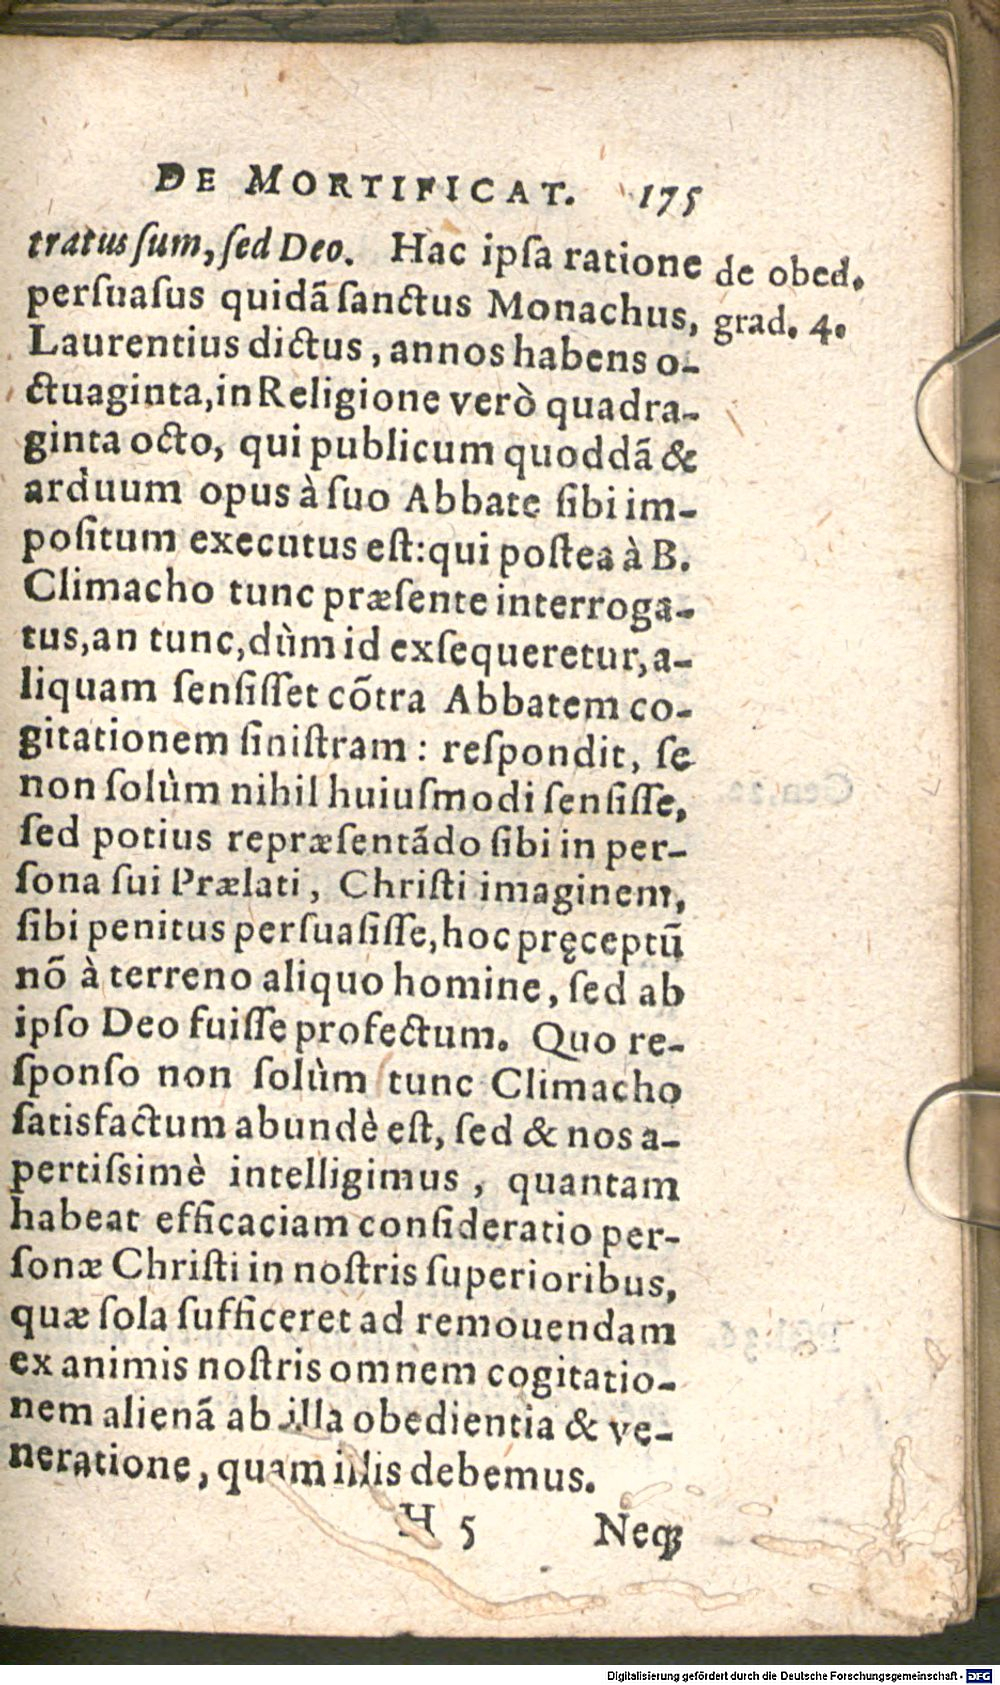 DE MORTIFICAT. 175
tratus sum, sed Deo. Hac ipsa ratione
de obed.
persuasus quidã sanctus Monachus,
grad. 4.
Laurentius dictus, annos habens o-
ctuaginta, in Religione verò quadra-
ginta octo, qui publicum quoddã &
arduum opus à suo Abbate sibi im-
positum executus est: qui postea à B.
Climacho tunc præsente interroga-
tus, an tunc, dùm id exsequeretur, a-
liquam sensisset cõtra Abbatem co-
gitationem sinistram: respondit, se
non solùm nihil huiusmodi sensisse,
sed potius repræsentãdo sibi in per-
sona sui Prælati, Christi imaginem,
sibi penitus persuasisse, hoc pręceptũ
nõ à terreno aliquo homine, sed ab
ipso Deo fuisse profectum. Quo re-
sponso non solùm tunc Climacho
satisfactum abundè est, sed & nos a-
pertissimè intelligimus, quantam
habeat efficaciam consideratio per-
sonæ Christi in nostris superioribus,
quæ sola sufficeret ad remouendam
ex animis nostris omnem cogitatio-
nem alienã ab illa obedientia & ve-
neratione, quam illis debemus.
H 5 Neq;
Digitalisierung gefördert durch die Deutsche Forschungsgemeinschaft - DFG